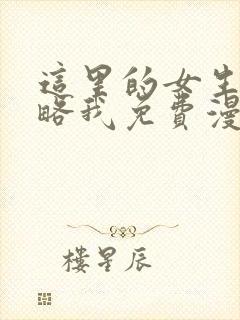 這里的女生
略我免費漫
樓星辰